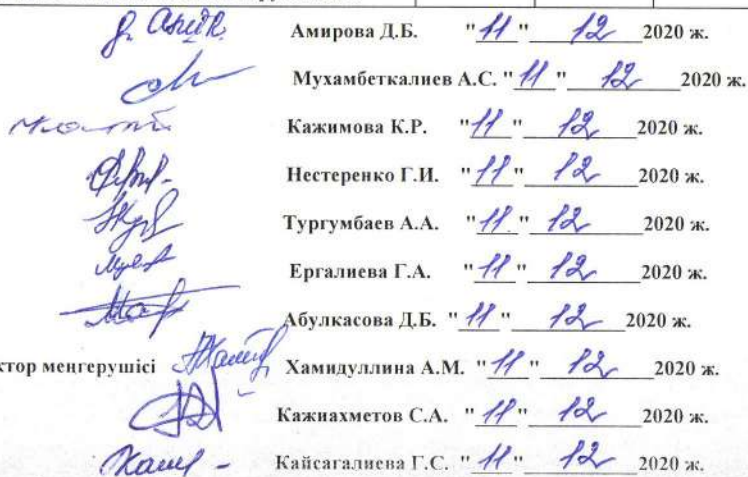 Амирова Д.Б. "11" 12 2020 ж.
Мухамбеткалиев А.С. "11" 12 2020 ж.
Кажимова К.Р. "11" 12 2020 ж.
Нестеренко Г.И. "11" 12 2020 ж.
Тургумбаев А.А. "11" 12 2020 ж.
Ергалиева Г.А. "11" 12 2020 ж.
Абулкасова Д.Б. "11" 12 2020 ж.
ктор меңгерушісі Хамидуллина А.М. "11" 12 2020 ж.
Кажиахметов С.А. "11" 12 2020 ж.
Кайсагалиева Г.С. "11" 12 2020 ж.